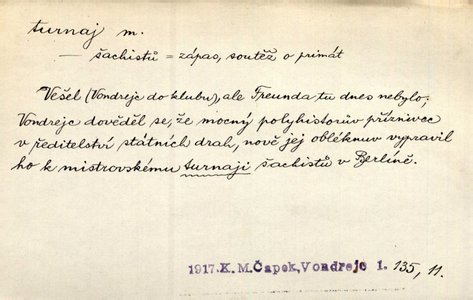 turnaj m.
— šachistů = zápas, soutěž o primát
Vešel (Vondrejc do klubu), ale Freunda tu dnes nebylo;
Vondrejc dověděl se, že mocný polyhistorův příznivec
v ředitelství státních drah, nově jej obléknuv vypravil
ho k mistrovskému turnaji šachistů v Berlíně.
1917.K.M.Čapek,Vondrejc 1. 135, 11.